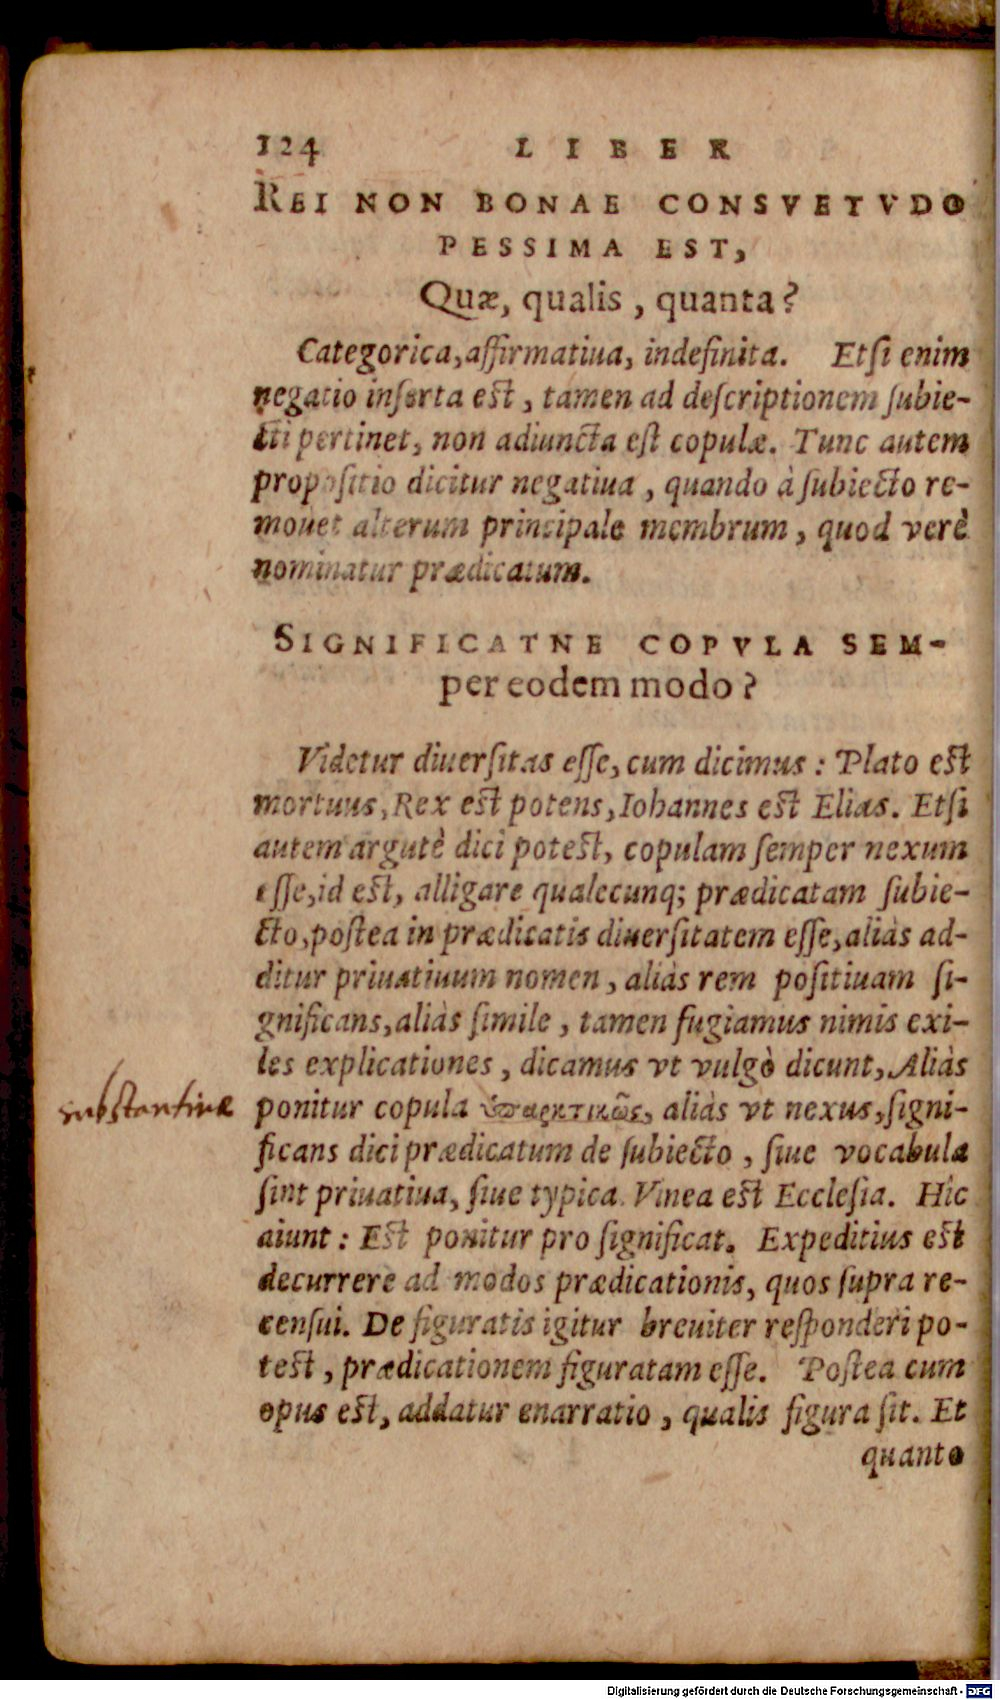 124 LIBER
REI NON BONAE CONSVETVDO
PESSIMA EST,
Quæ, qualis, quanta?
Categorica, affirmatiua, indefinita. Etſi enim
negatio inſerta est, tamen ad deſcriptionem ſubie-
cti pertinet, non adiuncta eſt copulæ. Tunc autem
propoſitio dicitur negatiua, quando à ſubiecto re-
mouet alterum principale membrum, quod verè
nominatur prædicatum.
SIGNIFICATNE COPVLA SEM-
per eodem modo?
Videtur diuerſitas eſſe, cum dicimus: Plato est
mortuus, Rex est potens, Iohannes est Elias. Etſi
autem argutè dici potest, copulam ſemper nexum
eſſe, id est, alligare qualecunq; prædicatam ſubie-
cto, poſtea in prædicatis diuerſitatem eſſe, aliàs ad-
ditur priuatiuum nomen, aliàs rem poſitiuam ſi-
gnificans, aliàs ſimile, tamen fugiamus nimis exi-
les explicationes, dicamus vt vulgò dicunt, Aliàs
substantiuè
ponitur copula ὑπαρκτικῶς, aliàs vt nexus, ſigni-
ficans dici prædicatum de ſubiecto, ſiue vocabula
ſint priuatiua, ſiue typica. Vinea est Eccleſia. Hic
aiunt: Est ponitur pro ſignificat. Expeditius est
decurrere ad modos prædicationis, quos ſupra re-
cenſui. De figuratis igitur breuiter reſponderi po-
test, prædicationem figuratam eſſe. Poſtea cum
opus est, addatur enarratio, qualis figura ſit. Et
quanto
Digitalisierung gefördert durch die Deutsche Forschungsgemeinschaft - DFG